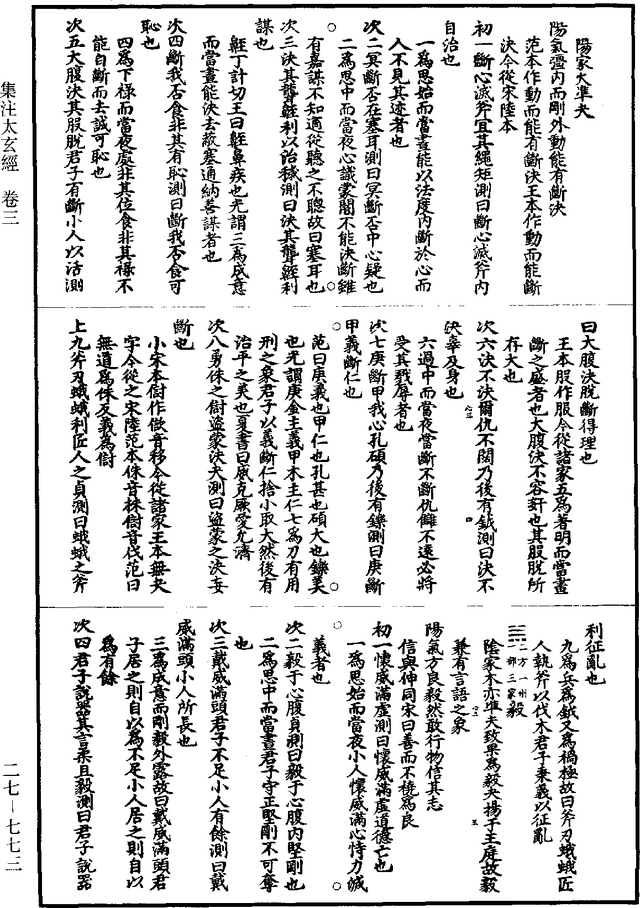 陽家木準夬
陽氣彊內而剛外動能有斷決
范本作動而能有斷決王本作動而能斷
決今從宋陸本
初一斷心滅斧冝其繩矩測曰斷心滅斧內
自治也
一為思始而當晝能以法度內斷於心而
人不見其迹者也
次二冥斷否在塞耳測曰冥斷否中心疑也
二為思中而當夜心識蒙闇不能決斷雖
有嘉謀不知適從聽之不聰故曰塞耳也
次三決其聾𪖐利以治穢測曰決其聾𪖐利
謀也
𪖐丁計切王曰𪖐鼻疾也光謂三為成意
而當晝能決去蔽塞通納善謀者也
次四斷我否食非其有恥測曰斷我否食可
恥也
四為下祿而當夜處非其位食非其祿不
能自斷而去誠可恥也
次五大腹決其股脫君子有斷小人以活測
曰大腹決脫斷得理也
王本股作服今從諸家五為著明而當晝
斷之盛者也大腹決不容姧也其股脫所
存大也
次六決不決爾仇不闊乃後有鉞測曰決不
決辜及身也
六過中而當夜當斷不斷仇讎不遠必將
受其戮辱者也
次七庚斷甲我心孔碩乃後有鑠測曰庚斷
甲義斷仁也
范曰庚義也甲仁也孔甚也碩大也鑠美
也光謂庚金主義甲木主仁七為刀有用
刑之象君子以義斷仁捨小取大然後有
治平之美也夏書曰威克厥愛允濟
次八勇侏之傠盜蒙決夬測曰盜蒙之決妄
斷也
小宋本傠作傚音移今從諸家王本無夬
字今從之宋陸范本侏音株傠音伐范曰
無道為侏反義為傠
上九斧刃蛾蛾利匠人之貞測曰蛾蛾之斧
利征亂也
九為兵為鉞又為禍極故曰斧刃蛾蛾匠
人執斧以伐木君子秉義以征亂
一方一州二部三家毅
陰家木亦準夬致果為毅夬揚于王庭故毅
兼有言語之象
陽氣方良毅然敢行物信其志
信與伸同宋曰善而不橈為良
初一懷威滿虛測曰懷威滿虛道德亡也
一為思始而當夜小人懷威滿心恃力滅
義者也
次二毅于心腹貞測曰毅于心腹內堅剛也
二為思中而當晝君子守正堅剛不可奪
也
次三戴威滿頭君子不足小人有餘測曰戴
威滿頭小人所長也
三為成意而剛毅外露故曰戴威滿頭君
子居之則自以為不足小人居之則自以
為有餘
次四君子說器其言柔且毅測曰君子說器
集注太玄經　卷三
二七—七七三